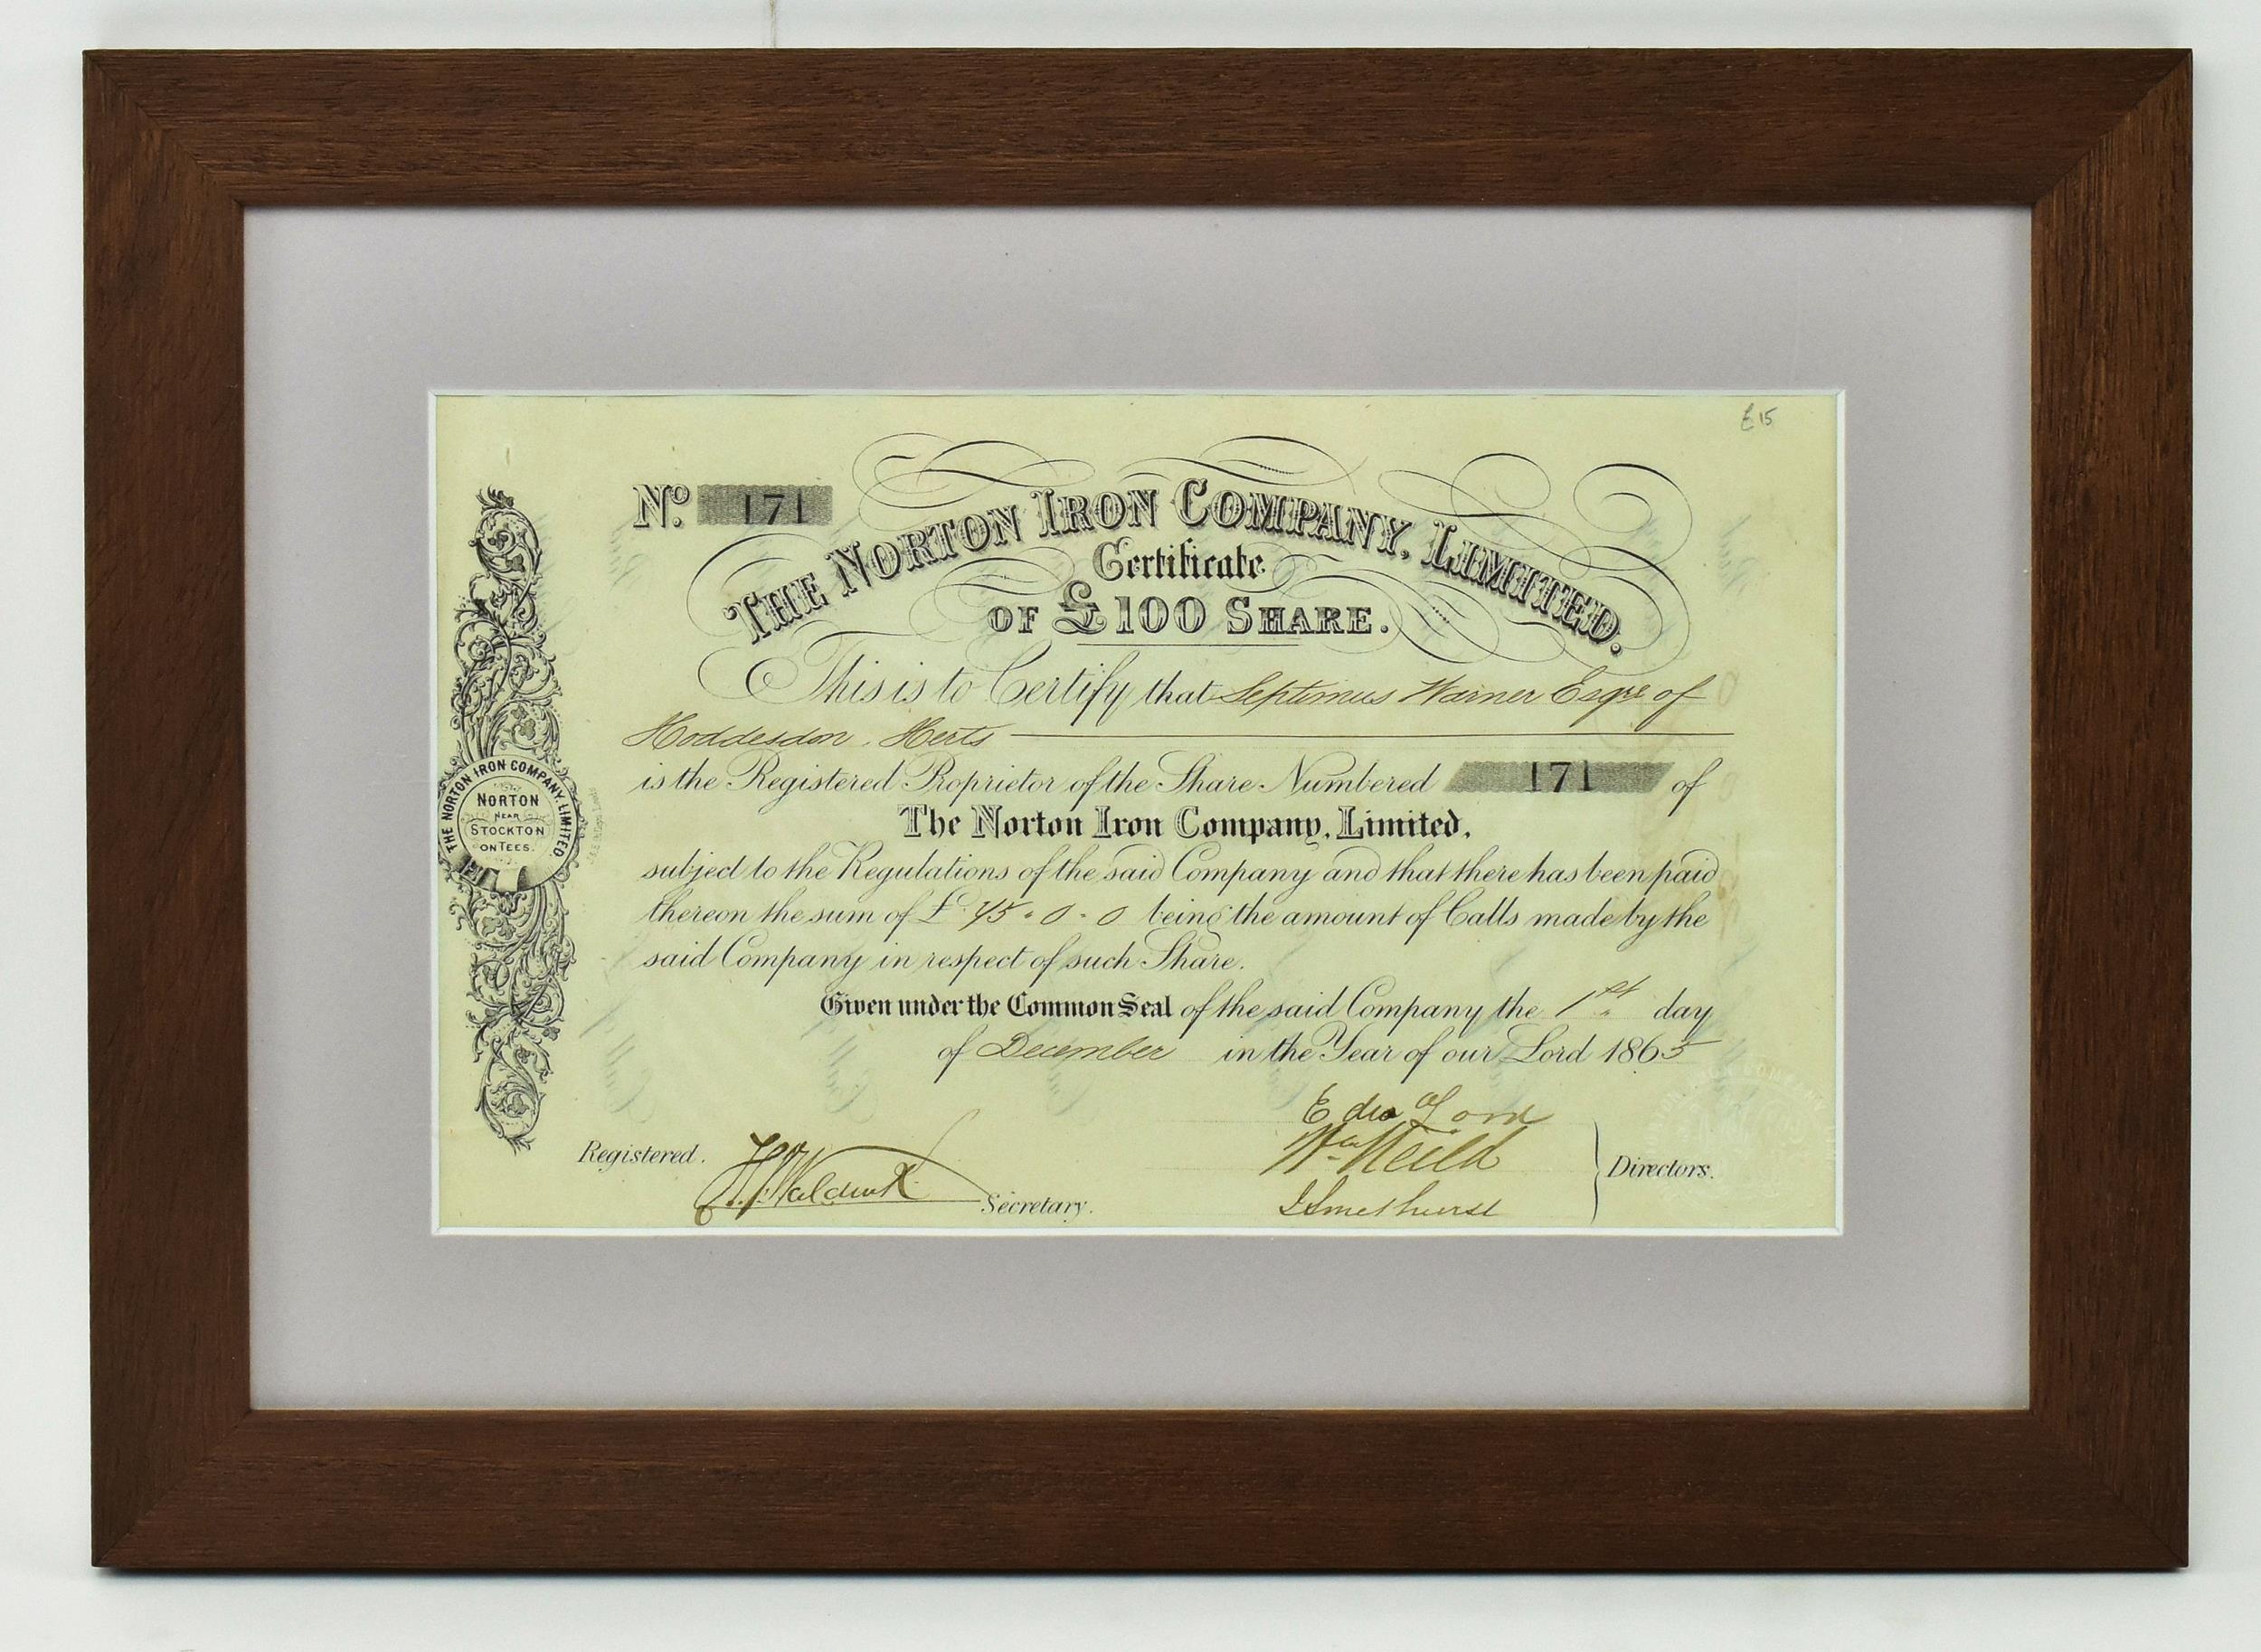 £15
No. 171
THE NORTON IRON COMPANY, LIMITED.
Certificate
OF £100 SHARE.
This is to Certify that Septimus Warner Esqre of
Hoddesdon, Herts
is the Registered Proprietor of the Share Numbered 171 of
The Norton Iron Company, Limited,
subject to the Regulations of the said Company and that there has been paid
thereon the sum of £ 75 - 0 - 0 being the amount of Calls made by the
said Company in respect of such Share.
Given under the Common Seal of the said Company the 1st day
of December in the Year of our Lord 1865
THE NORTON IRON COMPANY, LIMITED
NORTON
NEAR
STOCKTON
ON TEES.
Registered.
Secretary.
Wm Neild
J Smethurst
Directors.